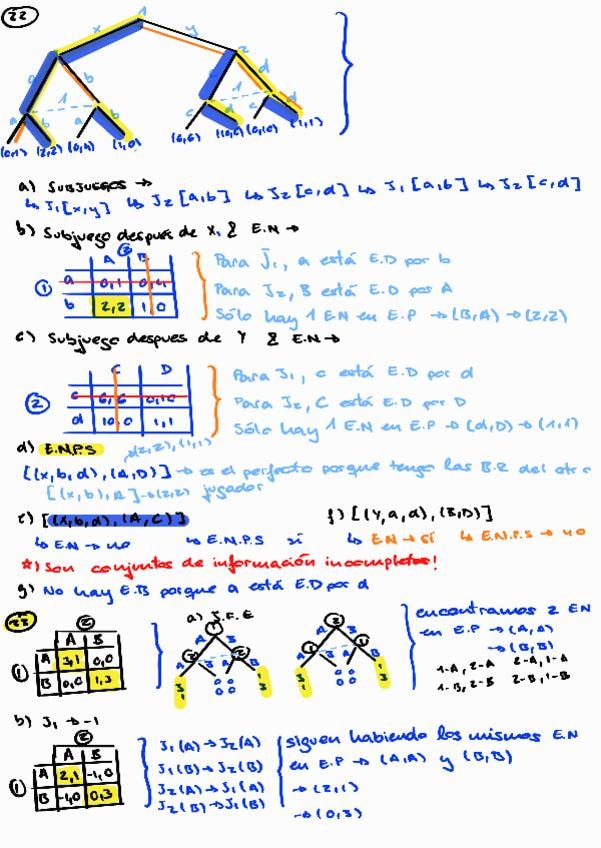 22
x 1 y
a b 2 c d
1 1
a b a b c d c d
(0,1) (2,2) (0,4) (1,0) (6,6) (10,0) (0,10) (1,1)
a) SUBJUEGOS →
↳ J1 [x,y] ↳ J2 [a,b] ↳ J2 [c,d] ↳ J1 [a,b] ↳ J2 [c,d]
b) Subjuego después de X, & E.N →
②
A B
① a 0,1 0,4
b 2,2 1,0
Para J1, a está E.D por b
Para J2, B está E.D por A
Sólo hay 1 EN en E.P → (B,A) → (2,2)
c) Subjuego despues de Y & E.N →
C D
② c 6,6 0,10
d 10,0 1,1
Para J1, c está E.D por d
Para J2, C está E.D por D
Sólo hay 1 E.N en E.P → (d,D) → (1,1)
d) E.N.P.S (2,2), (1,1)
[(x,b,d),(A,D)] → es el perfecto porque tengo las B.R del otro
[(x,b),A] → (2,2) jugador
e) [(x,b,d),(A,C)] f) [(Y,a,d),(B,D)]
↳ E.N → no ↳ E.N.P.S sí ↳ E.N → sí ↳ E.N.P.S → no
*) Son conjuntos de información incompletos!
g) No hay E.B porque a está E.D por d
23
②
A B
① A 3,1 0,0
B 0,0 1,3
a) J.F.E
② A B ① ① A B A B 3 1 0 0 0 0 1 3
encontramos 2 EN
en E.P → (A,A)
→ (B,B)
1-A, 2-A 2-A, 1-A
1-B, 2-B 2-B, 1-B
b) J1 → -1
②
A B
① A 2,1 -1,0
B -1,0 0,3
J1 (A) → J2 (A)
J1 (B) → J2 (B)
J2 (A) → J1 (A)
J2 (B) → J1 (B)
siguen habiendo los mismos E.N
en E.P → (A,A) y (B,B)
→ (2,1)
→ (0,3)